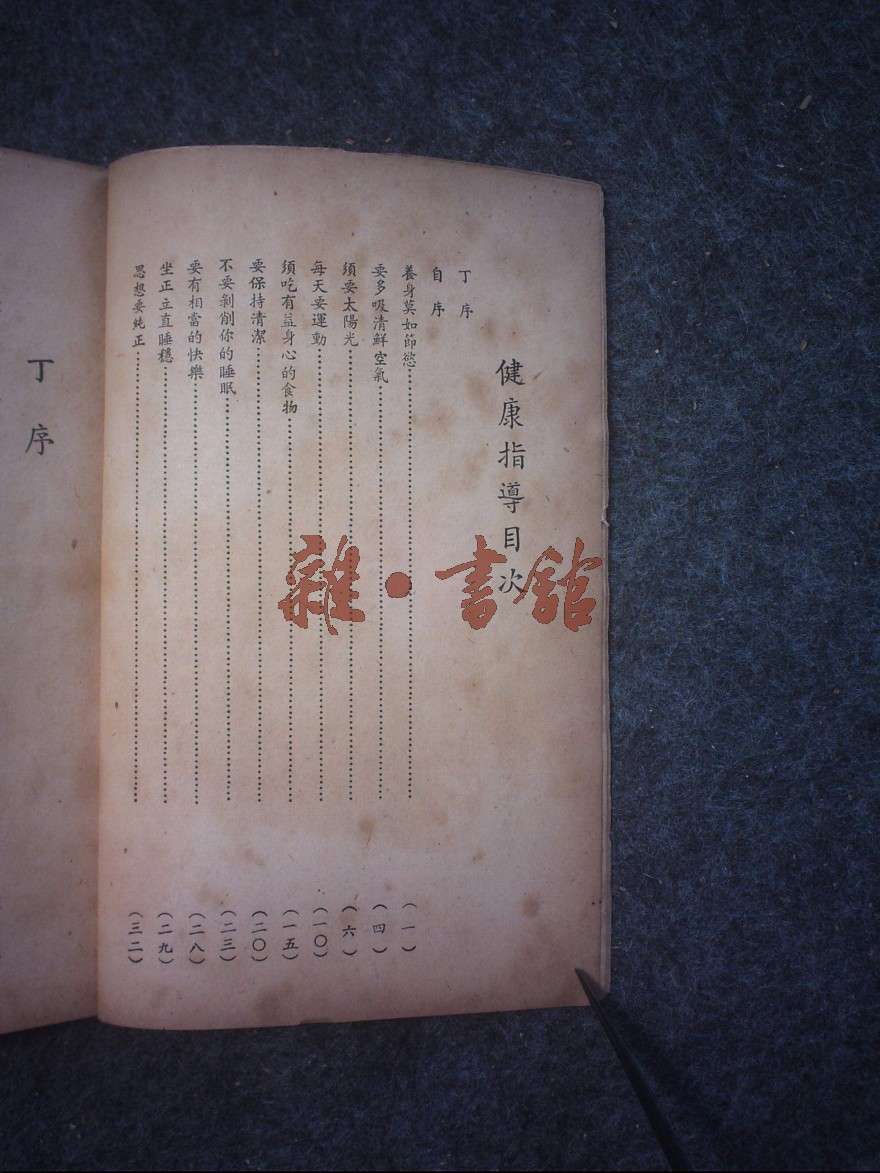 健康指導目次
丁序
自序
養身莫如節慾…(一)
要多吸清鮮空氣…(四)
須要太陽光…(六)
每天要運動…(一〇)
須吃有益身心的食物…(一五)
要保持清潔…(二〇)
不要剝削你的睡眠…(二三)
要有相當的快樂…(二八)
坐正立直睡穩…(二九)
思想要純正…(三二)
丁序
雜·書館